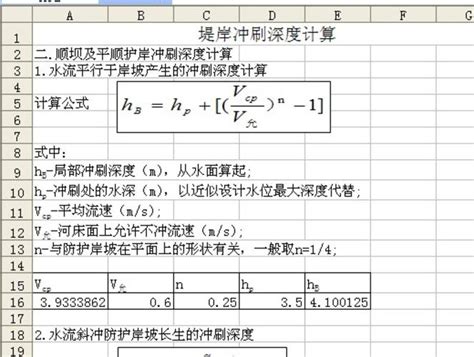 A B C D E F G
1 堤岸冲刷深度计算
2 二.顺坝及平顺护岸冲刷深度计算
3 1.水流平行于岸坡产生的冲刷深度计算
4
5 计算公式 h_B = h_p + [(V_cp / V_允)^n - 1]
6
7
8 式中:
9 h_B-局部冲刷深度(m),从水面算起;
10 h_p-冲刷处的水深(m),以近似设计水位最大深度代替;
11 V_cp-平均流速(m/s);
12 V_允-河床面上允许不冲流速(m/s);
13 n-与防护岸坡在平面上的形状有关,一般取n=1/4;
14
15 V_cp V_允 n h_p h_B
16 3.9333862 0.6 0.25 3.5 4.100125
17
18 2.水流斜冲防护岸坡长生的冲刷深度
19